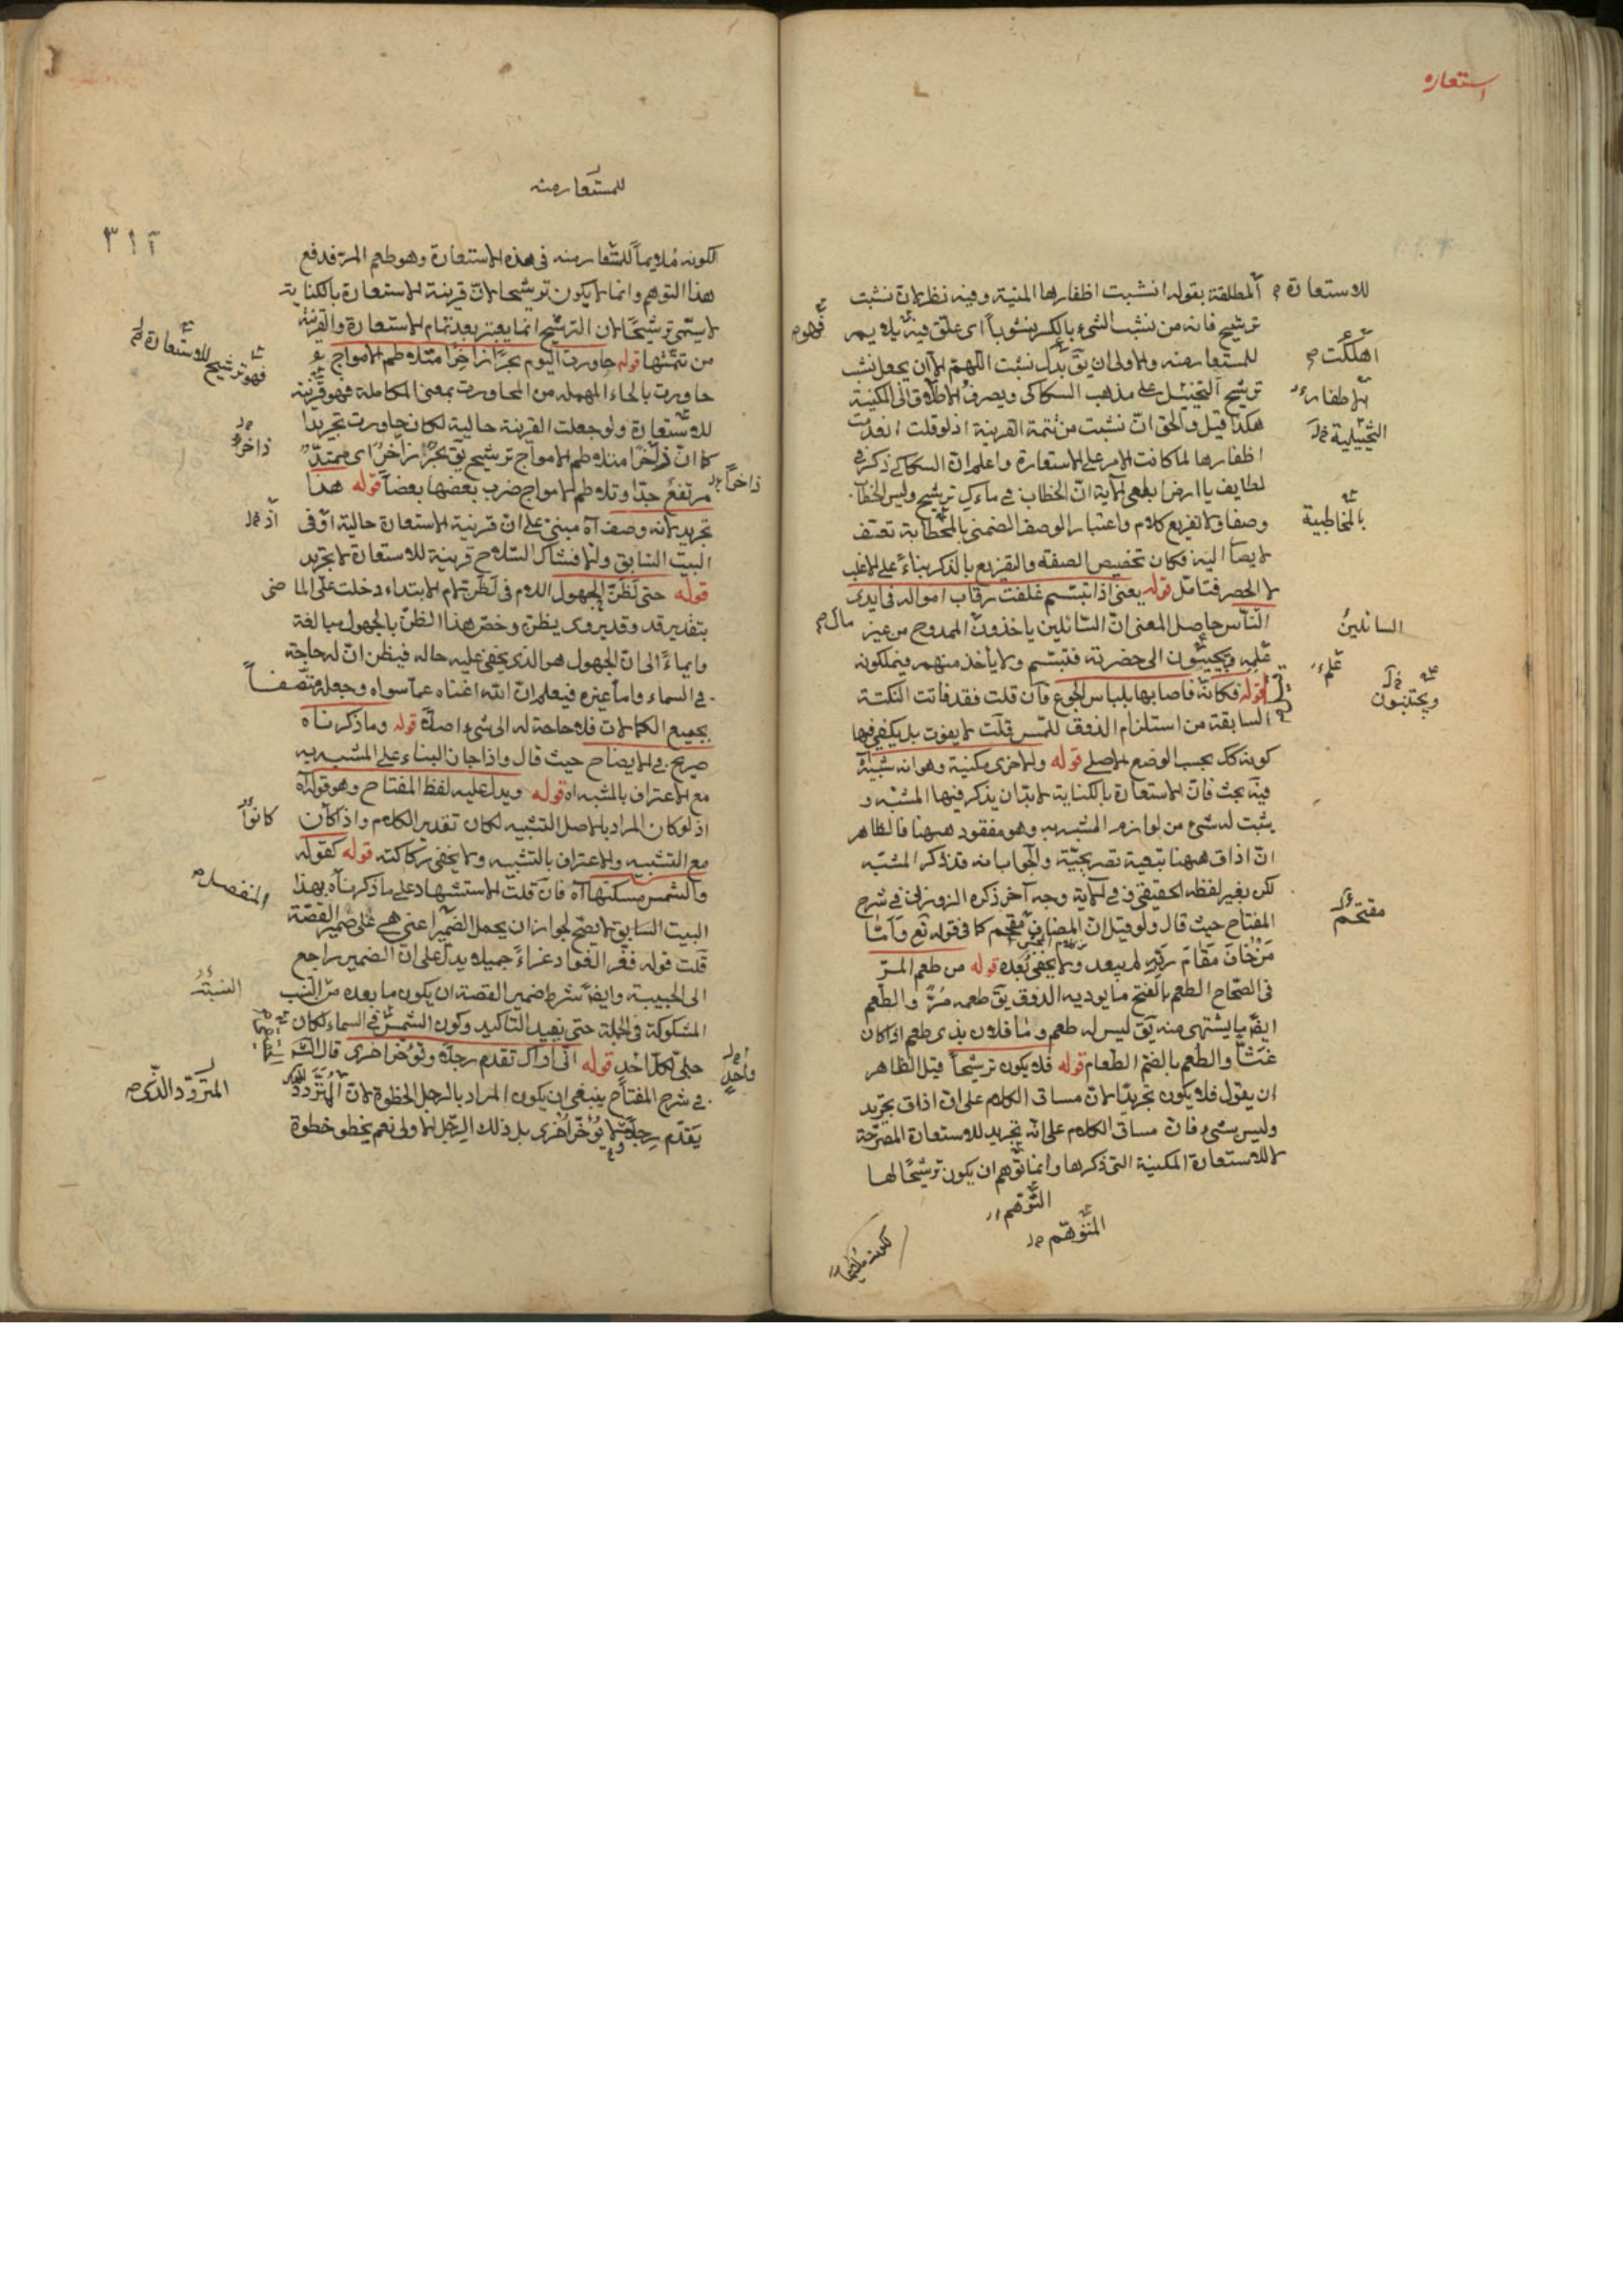 استعاره
للاستعارة المطلقة بقوله انشبت اظفارها المنية وفيه نظر لان نشبت
ترشيح فانه من نشب الشيء بالكسر نشوبا اى علق فيه يلايم
فهو
للمستعار منه والاولى ان يق بدل نشبت اللهم الا ان يجعل نشب
اهلكت
ترشيح التخييل على مذهب السكاكى ويصرف الاطلاق الى المكنية
الاظفار
هكذا قيل والحق ان نشبت من تتمة القرينة اذ لو قلت انعدمت
التخييلية
اظفارها لما كانت الامر على الاستعارة واعلم ان السكاكى ذكر فى
لطايف يا ارض ابلعى الآية ان الخطاب فى ماءك ترشيح وليس الخطاب
وصفا ولا تفريع كلام واعتبار الوصف الضمنى بالمخطابة تعسف
بالمخاطبية
لا يصار اليه فكان تخصيص الصفة والتفريع بالذكر بناء على الاغلب
لا الحصر فتامل قوله يعنى اذا تبسم غلقت رقاب امواله فى ايدى
الناس حاصل المعنى ان السائلين ياخذون الممدوح من غير
مال
السائلين
علمه ويجيئون الى حضرته فتبسم ولا يأخذ منهم فيملكونه
علم
ويجتنبون
قوله فكانه فاصابها بلباس الجوع فان قلت فقد فاتت النكتة
السابقة من استلزام الذوق للمس قلت لا يفوت بل يكفى فيها
كونه كك بحسب الوضع الاصلى قوله والاخرى مكنية وهو انه شبه
فيه بحث فان الاستعارة بالكناية لابد ان يذكر فيها المشبه و
يثبت له شيء من لوازم المشبه به وهو مفقود ههنا فالظاهر
ان اذاق ههنا تبعية تصريحية والجواب انه قد ذكر المشبه
لكن بغير لفظه الحقيقى وفى الآية وجه آخر ذكره الزوزنى فى شرح
المفتاح حيث قال ولو قيل ان المضاف مقحم كما فى قوله تع وامّا
مقتحم
مَنْ خَافَ مَقَامَ رَبِّهِ لم يبعد ولا يخفى بُعده قوله من طعم المرّ
فى الصحاح الطعم بالفتح ما يوديه الذوق يق طعمه مُرّ والطعم
ايضا ما يشتهى منه يق ليس له طعم وما فلان بذى طعم اذا كان
غثّا والطعم بالضم الطعام قوله فلا يكون ترشيحا قيل الظاهر
ان يقول فلا يكون تجريدا لان مساق الكلام على ان اذاق تجريد
وليس بشيء فان مساق الكلام على انه تجريد للاستعارة المصرحة
لا للاستعارة المكنية التى ذكرها وانما توهم ان يكون ترشيحا لها
التوهم
المتوهم
لكونه ملايما
للمستعار منه
٣١٢
لكونه مُلايما للمستعار منه فى هذه الاستعارة وهو طعم المر فدفع
هذا التوهم وانما لا يكون ترشيحا لان قرينة الاستعارة بالكناية
لا يسمى ترشيحا لان الترشيح انما يعتبر بعد تمام الاستعارة والقرينة
من تتمتها قوله جاورت اليوم بحرا زاخرا متلاطم الامواج
فهو ترشيح للاستعارة
حاورت بالحاء المهملة من المحاورت بمعنى المكاملة فهو قرينة
للاستعارة ولو جعلت القرينة حالية لكان حاورت تجريدا
كما ان زاخرا متلاطم الامواج ترشيح يق بحر زاخر اى ممتد
زاخر
زاخرا
مرتفع جدا وتلاطم الامواج ضرب بعضها بعضا قوله هذا
تجريد لانه وصف آه مبنى على ان قرينة الاستعارة حالية او فى
اذ
البيت السابق والا فشاك السلاح قرينة للاستعارة لا تجريد
قوله حتى لظنّ الجهول اللام فى لظن لام الابتداء دخلت على الماضى
بتقدير قد وقد يروى يظن وخصّ هذا الظن بالجهول مبالغة
وايماءً الى ان الجهول هو الذى يخفى عليه حاله فيظن ان له حاجة
فى السماء واما غيره فيعلم ان الله اغناه عما سواه وجعله متصفا
بجميع الكمالات فلا حاجة له الى شيء اصلا قوله وما ذكرناه
صريح فى الايضاح حيث قال واذا جاز البناء على المشبه به
مع الاعتراف بالمشبه اه قوله ويدل عليه لفظ المفتاح وهو قوله آه
اذ لو كان المراد بالاصل التشبيه لكان تقدير الكلام واذا كان
كانوا
مع التشبيه والاعتراف بالتشبيه ولا يخفى ركاكته قوله كقوله
والشمس مسكنها آه فان قلت الاستشهاد على ما ذكرناه بهذا
المنفصل
البيت السابق لا يصح لجواز ان يحمل الضمير اعنى هى على ضمير القصة
قلت قوله فعزّ الفؤاد عزاءً جميلا يدل على ان الضمير راجع
الى الحبيبة وايضا شرط ضمير القصة ان يكون ما بعده من النسب
المشكوكة فى الجملة حتى يفيد التاكيد وكون الشمس فى السماء لكان
جلى لكل احد قوله انى اراك تقدم رجلا وتؤخر اخرى قال
واحد
فى شرح المفتاح ينبغى ان يكون المراد بالرجل الخطوة لان المتردد
المتردد الذى
يقدم رجلا لا يؤخر اخرى بل ذلك الرجل الاولى نعم يخطو خطوة